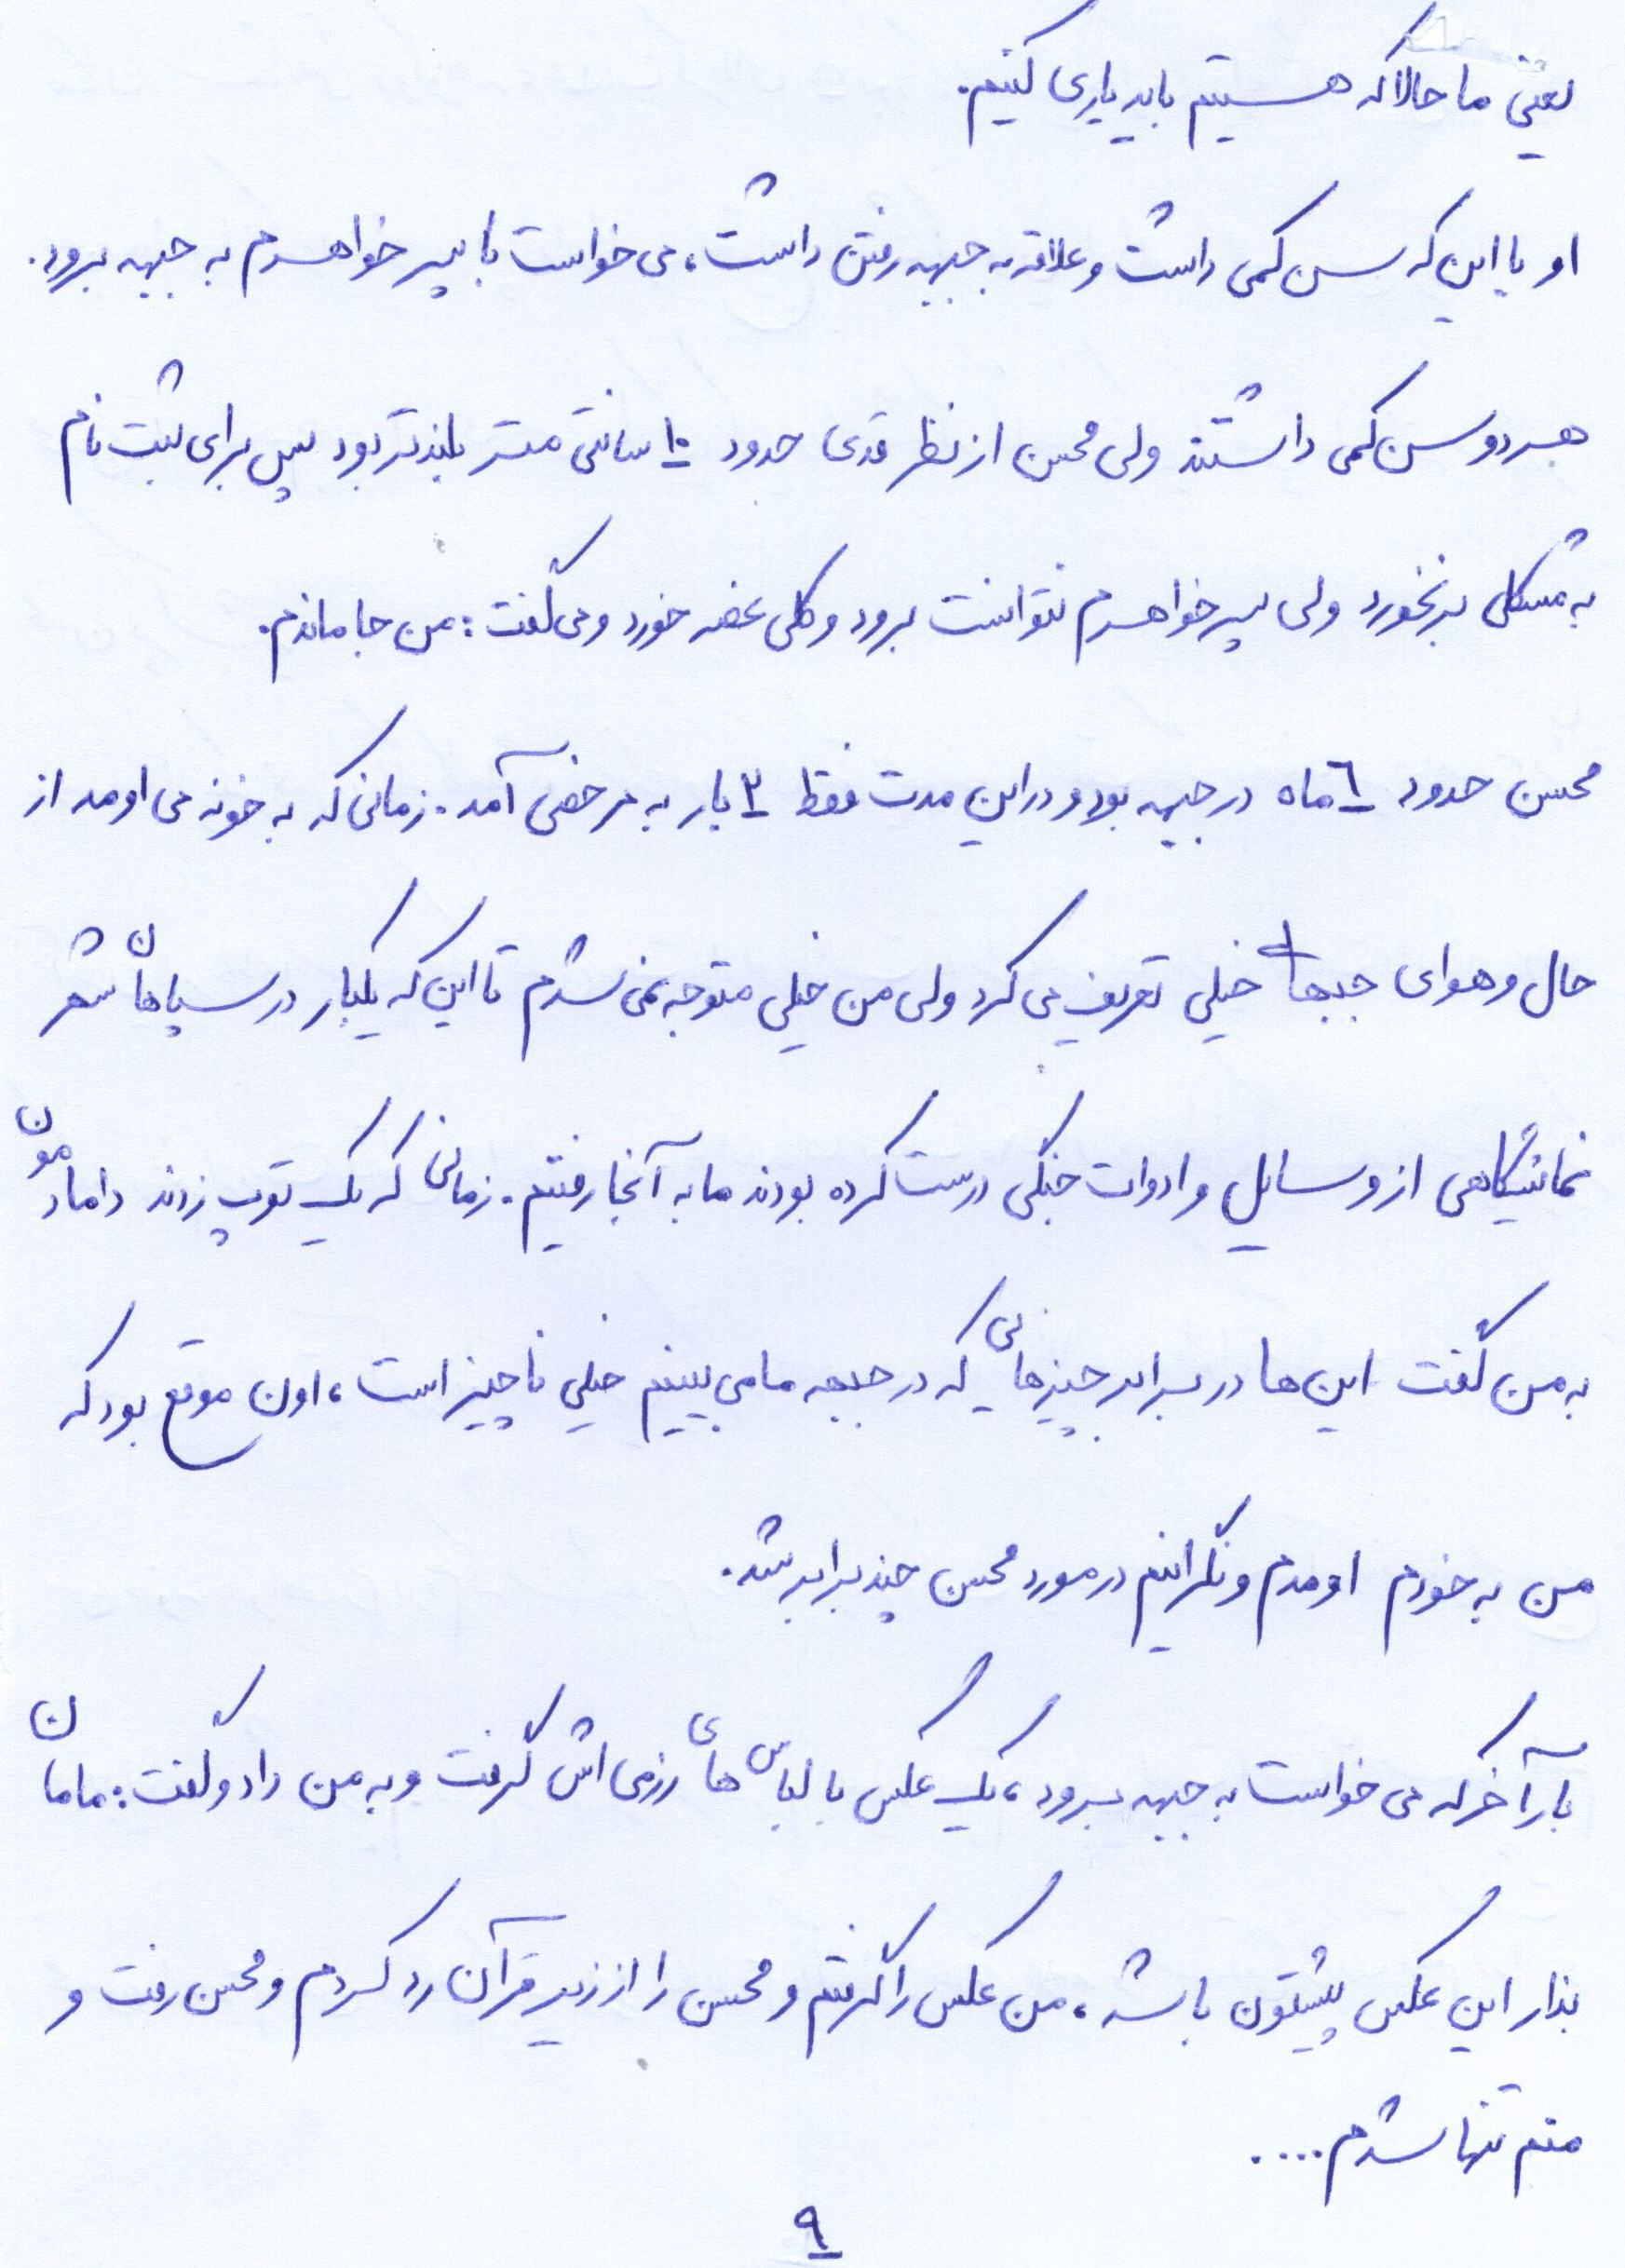 یعنی ما حالا که هستیم باید یاری کنیم.
او با این که سن کمی داشت و علاقه به جبهه رفتن داشت، می خواست با پسر خواهرم به جبهه برود.
هر دو سن کمی داشتند ولی محسن از نظر قدی حدود ۱۰ سانتی متر بلندتر بود پس برای ثبت نام
به مشکلی برنخورد ولی پسر خواهرم نتوانست برود و کلی غصه خورد و می گفت: من جا ماندم.
محسن حدود ۶ ماه در جبهه بود و در این مدت فقط ۲ بار به مرخصی آمد. زمانی که به خونه می اومد از
حال و هوای جبهه خیلی تعریف می کرد ولی من خیلی متوجه نمی شدم تا این که یکبار در سپاهان شهر
نمایشگاهی از وسایل و ادوات جنگی درست کرده بودند ما به آنجا رفتیم. زمانی که یک توپ زدند دامادمون
به من گفت این ها در برابر چیزهائی که در جبهه ما می بینیم خیلی ناچیز است، اون موقع بود که
من به خودم اومدم و نگرانیم در مورد محسن چند برابر شد.
بار آخر که می خواست به جبهه برود، یک عکس با لباس های رزمی اش گرفت و به من داد و گفت: مامان
بذار این عکس پیشتون باشه، من عکس را گرفتم و محسن را از زیر قرآن رد کردم و محسن رفت و
منم تنها شدم....
۹